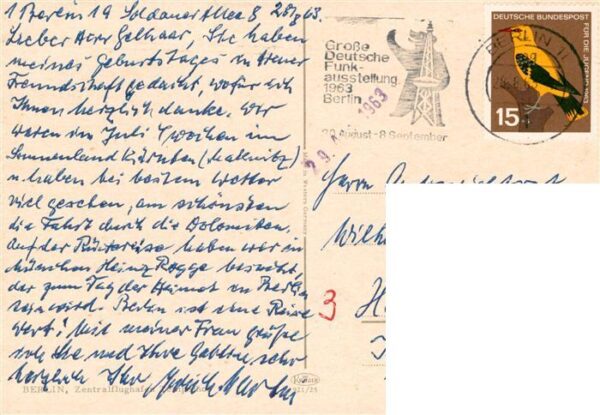 1 Berlin 19 Soldauer Allee 8 28/8 63.
Lieber Herr Gelhaar, Sie haben
meines Geburtstages in treuer
Freundschaft gedacht, wofür ich
Ihnen herzlich danke. Wir
waren im Juli 4 Wochen im
Sonnenland Kärnten (Mallnitz)
u. haben bei bestem Wetter
viel gesehen, am schönsten
die Fahrt durch die Dolomiten.
Auf der Rückreise haben wir in
München Heinz Rogge besucht,
der zum Tag der Heimat in Berlin
sein wird. Berlin ist eine Reise
wert! Mit meiner Frau grüße
ich Sie und Ihre Gattin sehr
herzlich Ihr
BERLIN, Zentralflughafen
Große
Deutsche
Funk-
ausstellung
1963
Berlin
30. August - 8. September
DEUTSCHE BUNDESPOST
FÜR DIE JUGEND 1963
15
BERLIN 11
29. 1963
Herrn
Wilh
3
H